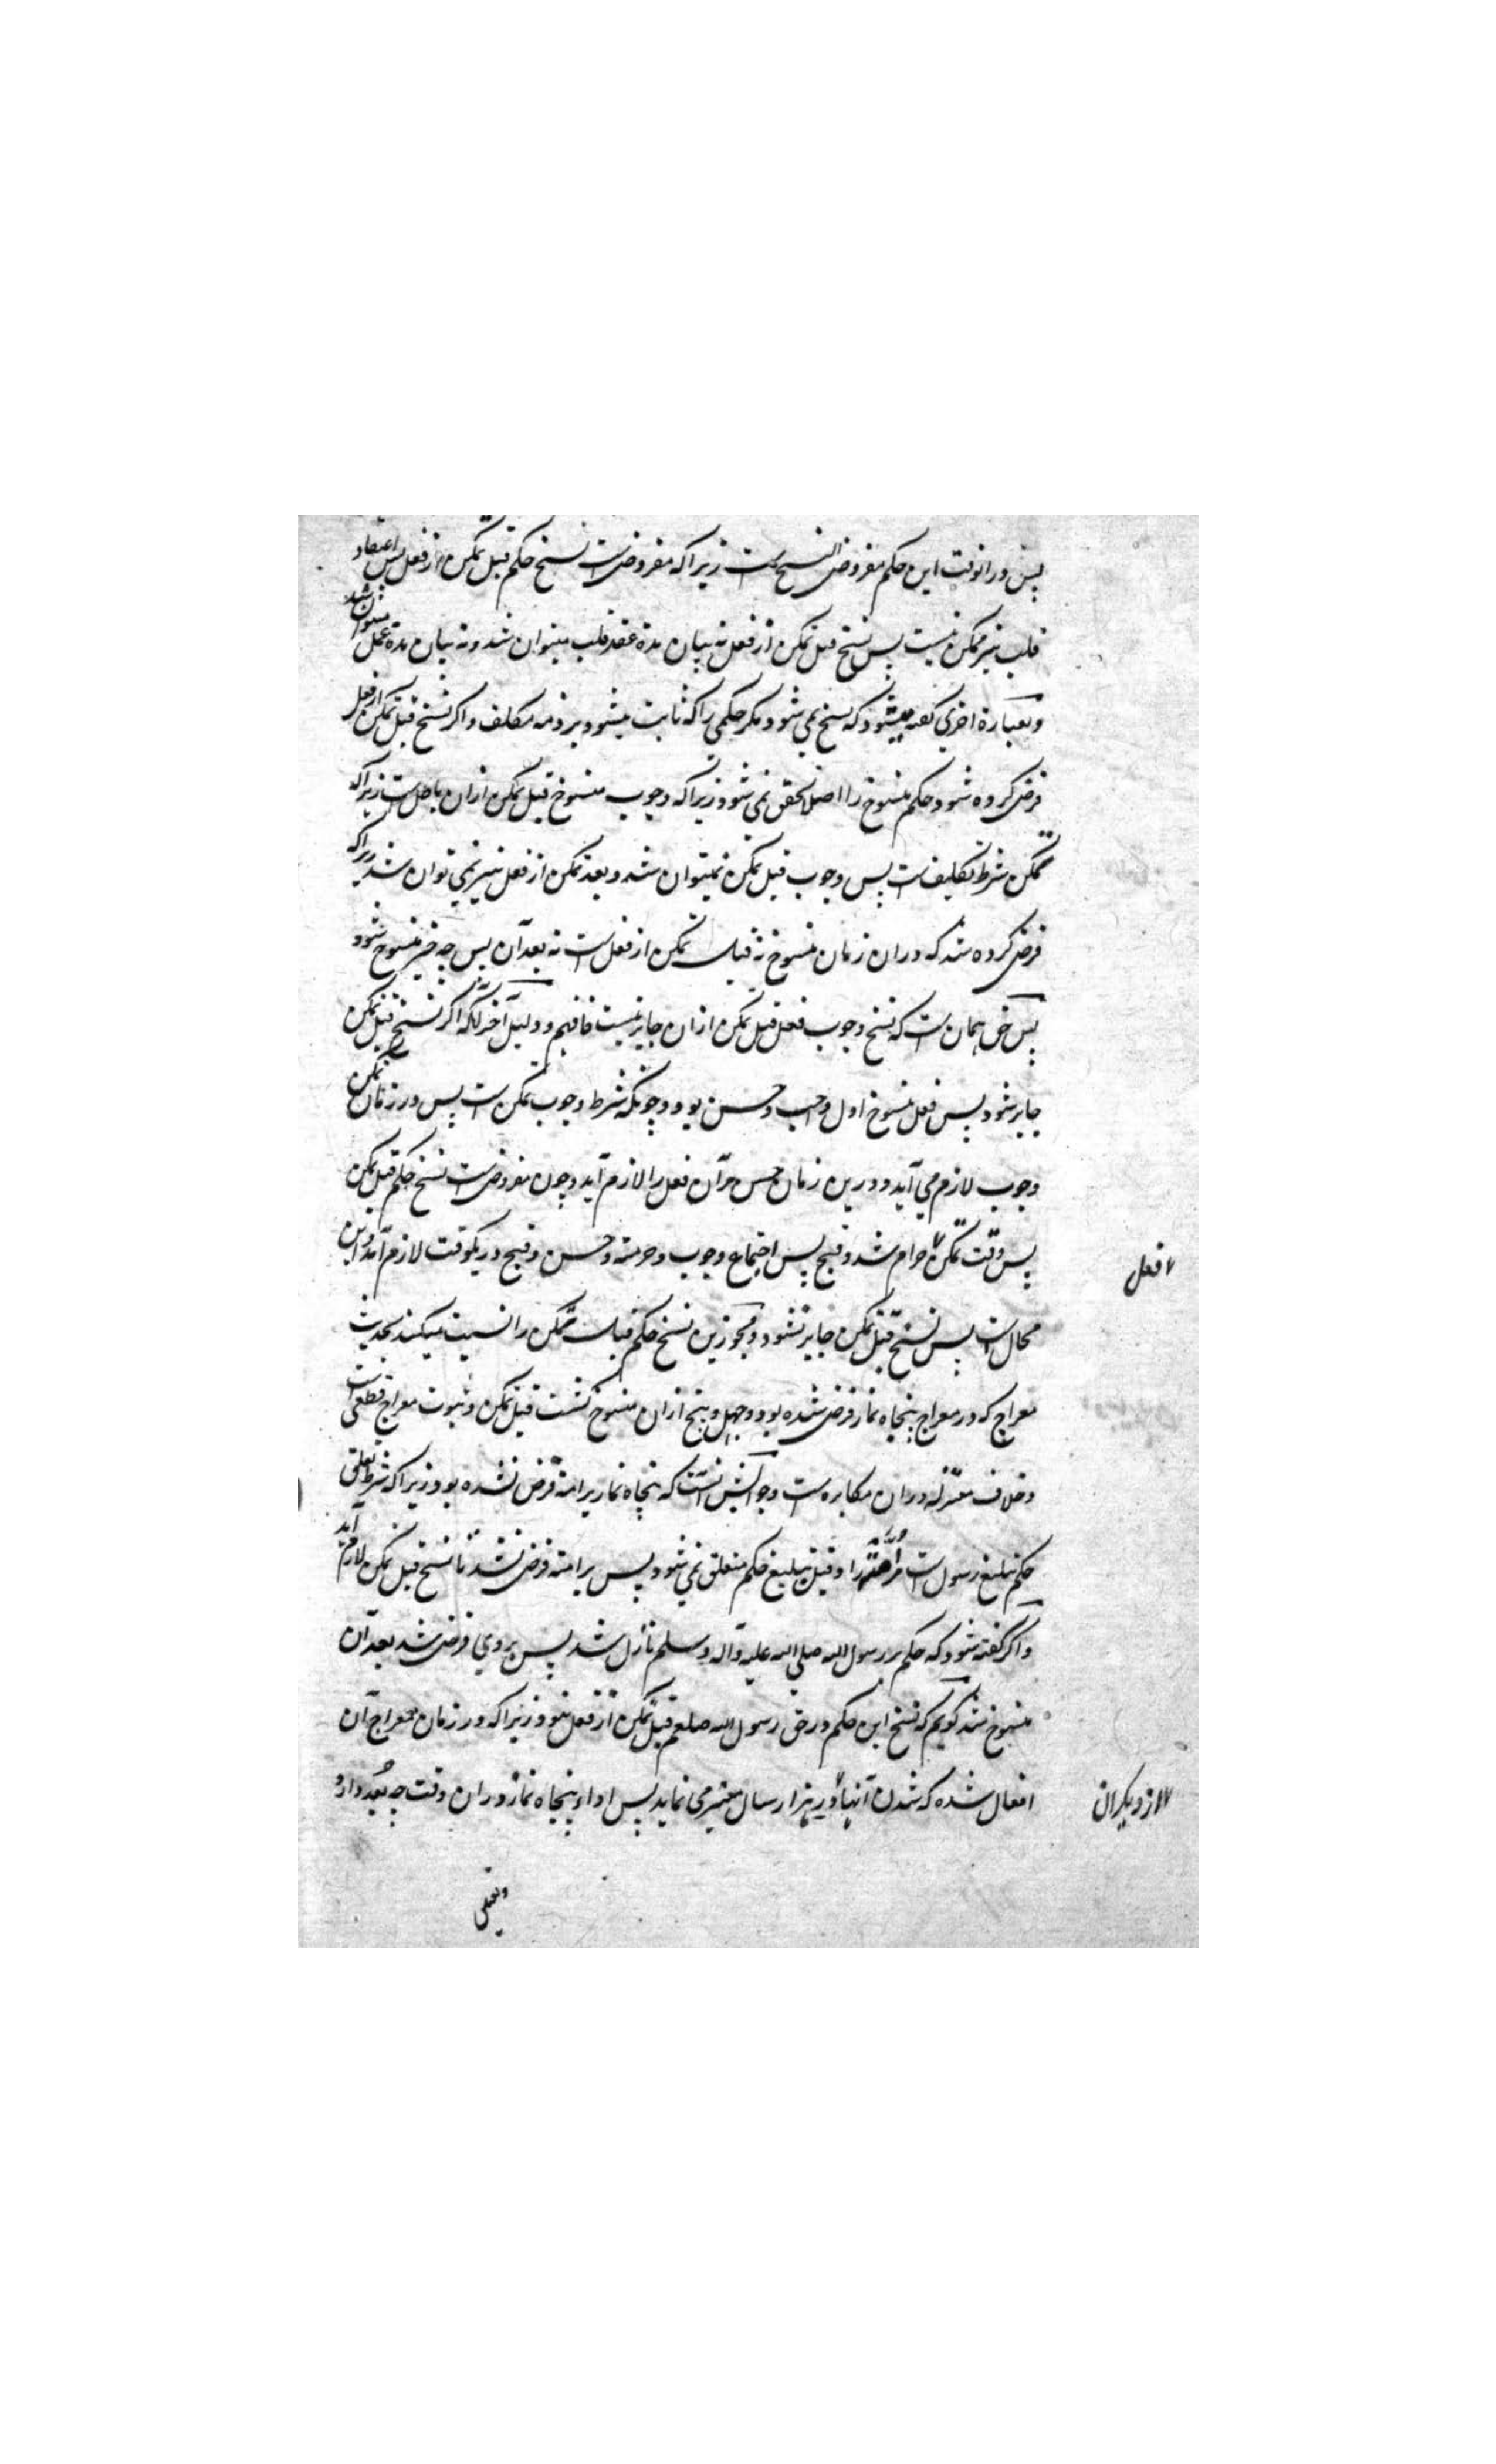 پس در انوقت این حکم مفروض النسخ است زیرا که مفروض است نسخ حکم قبل تمکن از فعل پس اعتقاد
قلب نیز ممکن نیست پس نسخ قبل تمکن از فعل نه بیان مدة عقد قلب میتوان شد و نه بیان مدة عمل میتوان شد
و بعبارة اخری گفته میشود که نسخ نمی شود مگر حکمی را که ثابت میشود بر ذمه مکلف و اگر نسخ قبل تمکن از فعل
فرض کرده شود حکم منسوخ را اصلا تحقق نمی شود زیرا که وجوب منسوخ قبل تمکن ازان باطل است زیرا که
تمکن شرط تکلیف است پس وجوب قبل تمکن نمیتوان شد و بعد تمکن از فعل نیز نمی توان شد زیرا که
فرض کرده شد که دران زمان منسوخ نه قبل تمکن از فعل است نه بعد آن پس چه چیز منسوخ شود
پس حق همان است که نسخ وجوب فعل قبل تمکن ازان جایز نیست فافهم و دلیل آخر آنکه اگر نسخ قبل تمکن
جایز شود پس فعل منسوخ اول واجب و حسن بود و چونکه شرط وجوب تمکن است پس در زمان تمکن
وجوب لازم می آید و درین زمان حسن مر آن فعل را لازم آید و چون مفروض است نسخ حکم قبل تمکن
پس وقت تمکن حرام شد و قبیح پس اجتماع وجوب و حرمته و حسن و قبح در یکوقت لازم آمد و این
فعل
محال است پس نسخ قبل تمکن جایز نشود و مجوزین نسخ حکم قبل تمکن را نسبت میکنند بحدیث
معراج که در معراج پنجاه نماز فرض شده بود و چهل و پنج ازان منسوخ گشت قبل تمکن و ثبوت معراج قطعی است
و خلاف معتزله دران مکابره است و جوابش انست که پنجاه نماز بر امة فرض نشده بود زیرا که شرط تعلق
حکم تبلیغ رسول است مر امة را و قبل تبلیغ حکم متعلق نمی شود پس بر امة فرض نشد تا نسخ قبل تمکن لازم آید
و اگر گفته شود که حکم بر رسول الله صلی الله علیه و آله وسلم نازل شد پس بر وی فرض شد بعد آن
منسوخ شد گویم که نسخ این حکم در حق رسول الله صلعم قبل تمکن از فعل نبود زیرا که در زمان معراج آن
افعال شده که شدن آنها در هزار سال متعسر می نماید پس اداء پنجاه نماز دران وقت چه بُعد دارد
از دیگران